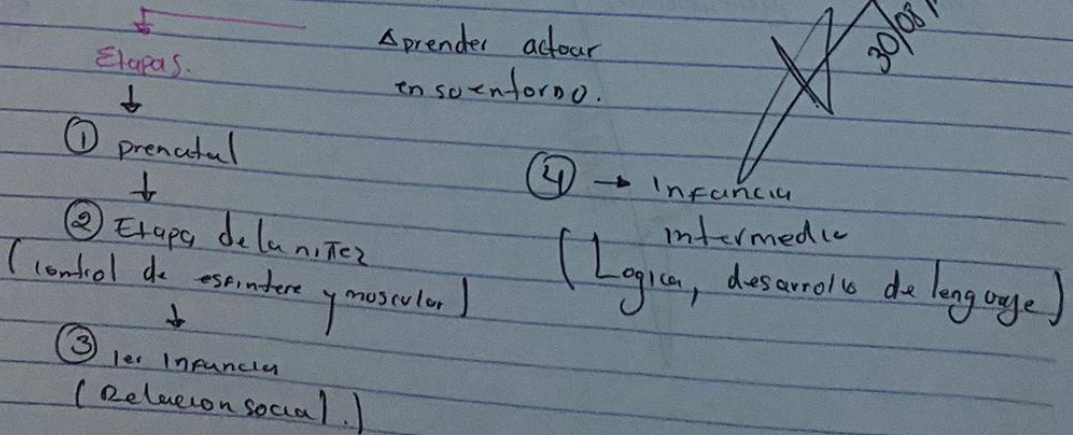 Etapas.
↓
① prenatal
↓
② Etapa de la niñez
(control de esfintere y muscular)
↓
③ 1er Infancia
(Relacion social.)
Aprender actuar
en su entorno.
30/08/
④ → Infancia
intermedia
(Logica, desarrollo de lenguaje)